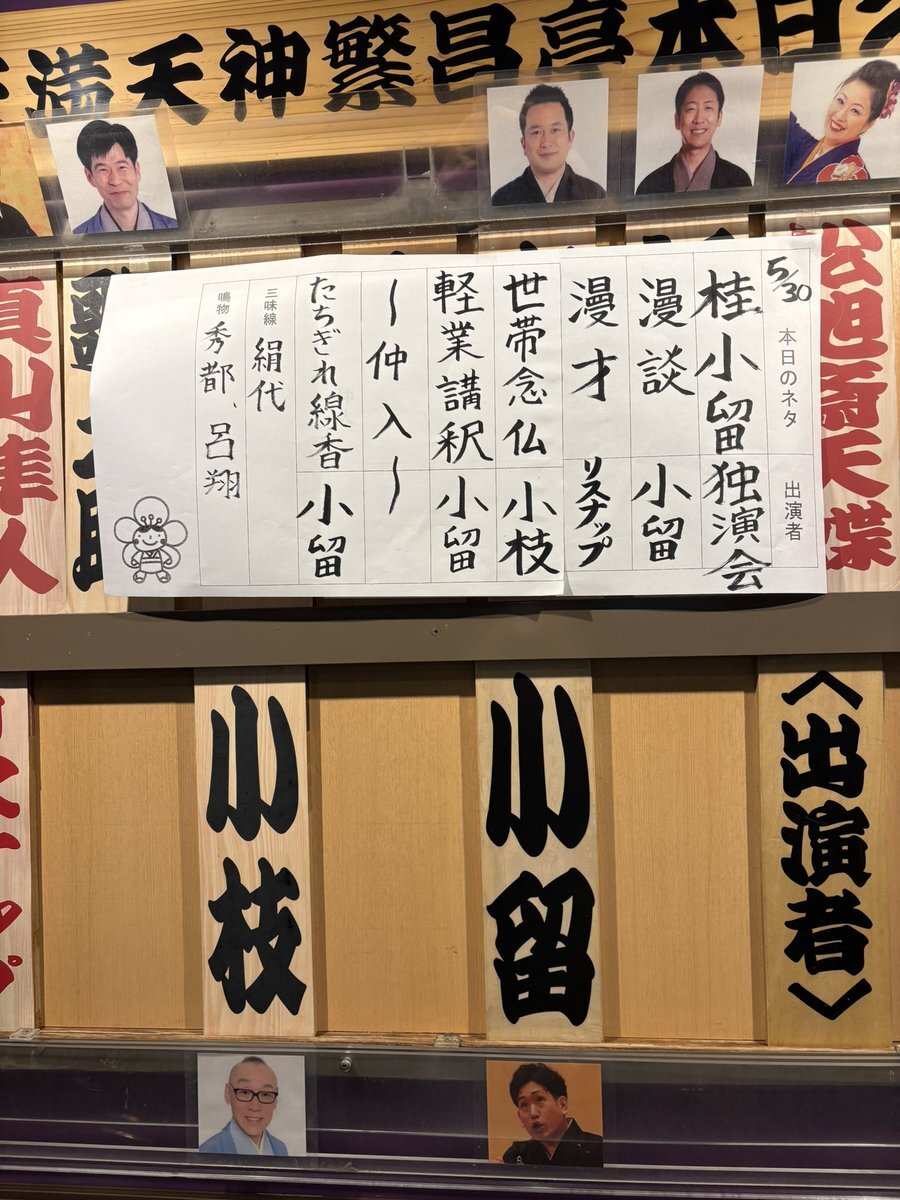 満天神繁昌亭本日
5/30 本日のネタ 出演者
桂小留独演会
漫談 小留
漫才 リスナップ
世帯念仏 小枝
軽業講釈 小留
〜仲入〜
たちぎれ線香 小留
三味線 絹代
鳴物 秀都、呂翔
真山隼人
〈出演者〉
小留
小枝